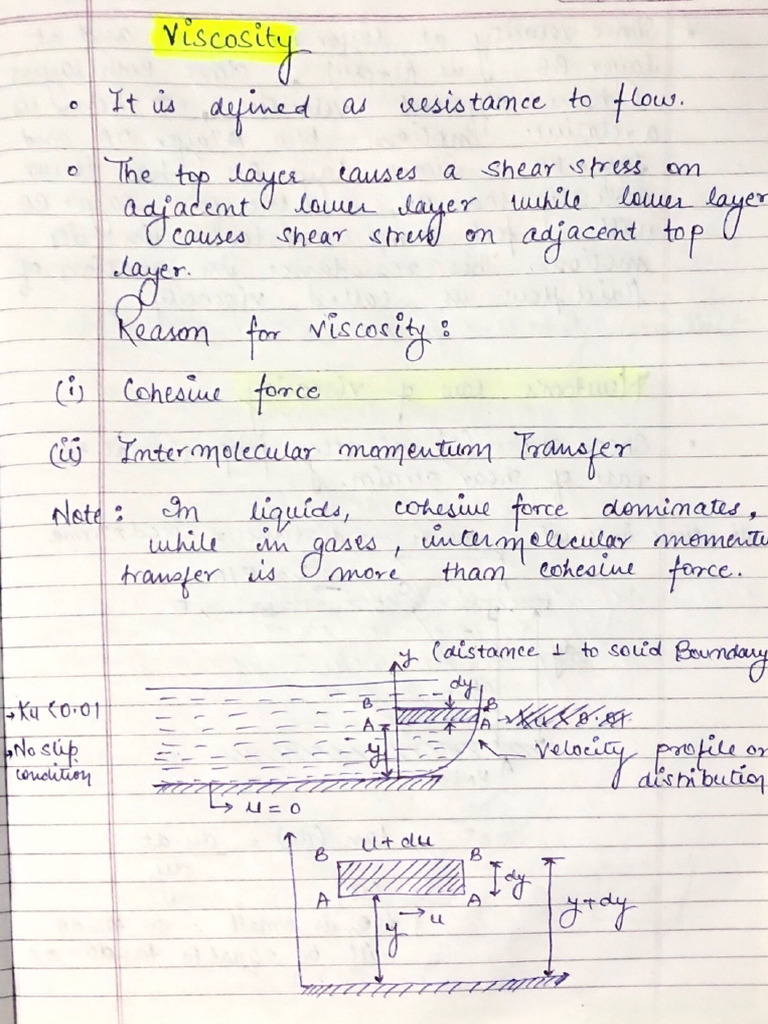 Viscosity
It is defined as resistance to flow.
The top layer causes a shear stress on
adjacent lower layer while lower layer
causes shear stress on adjacent top
layer.
Reason for viscosity:
(i) Cohesive force
(ii) Intermolecular momentum Transfer
Note: In liquids, cohesive force dominates,
while in gases, intermolecular momentu
transfer is more than cohesive force.
y (distance ⊥ to solid Boundary
dy
B B
→ Ku < 0.01
A A
→ No slip
condition
y
Velocity profile or
distribution
→ u = 0
u + du
B B
dy
A A
y + dy
→ u
y